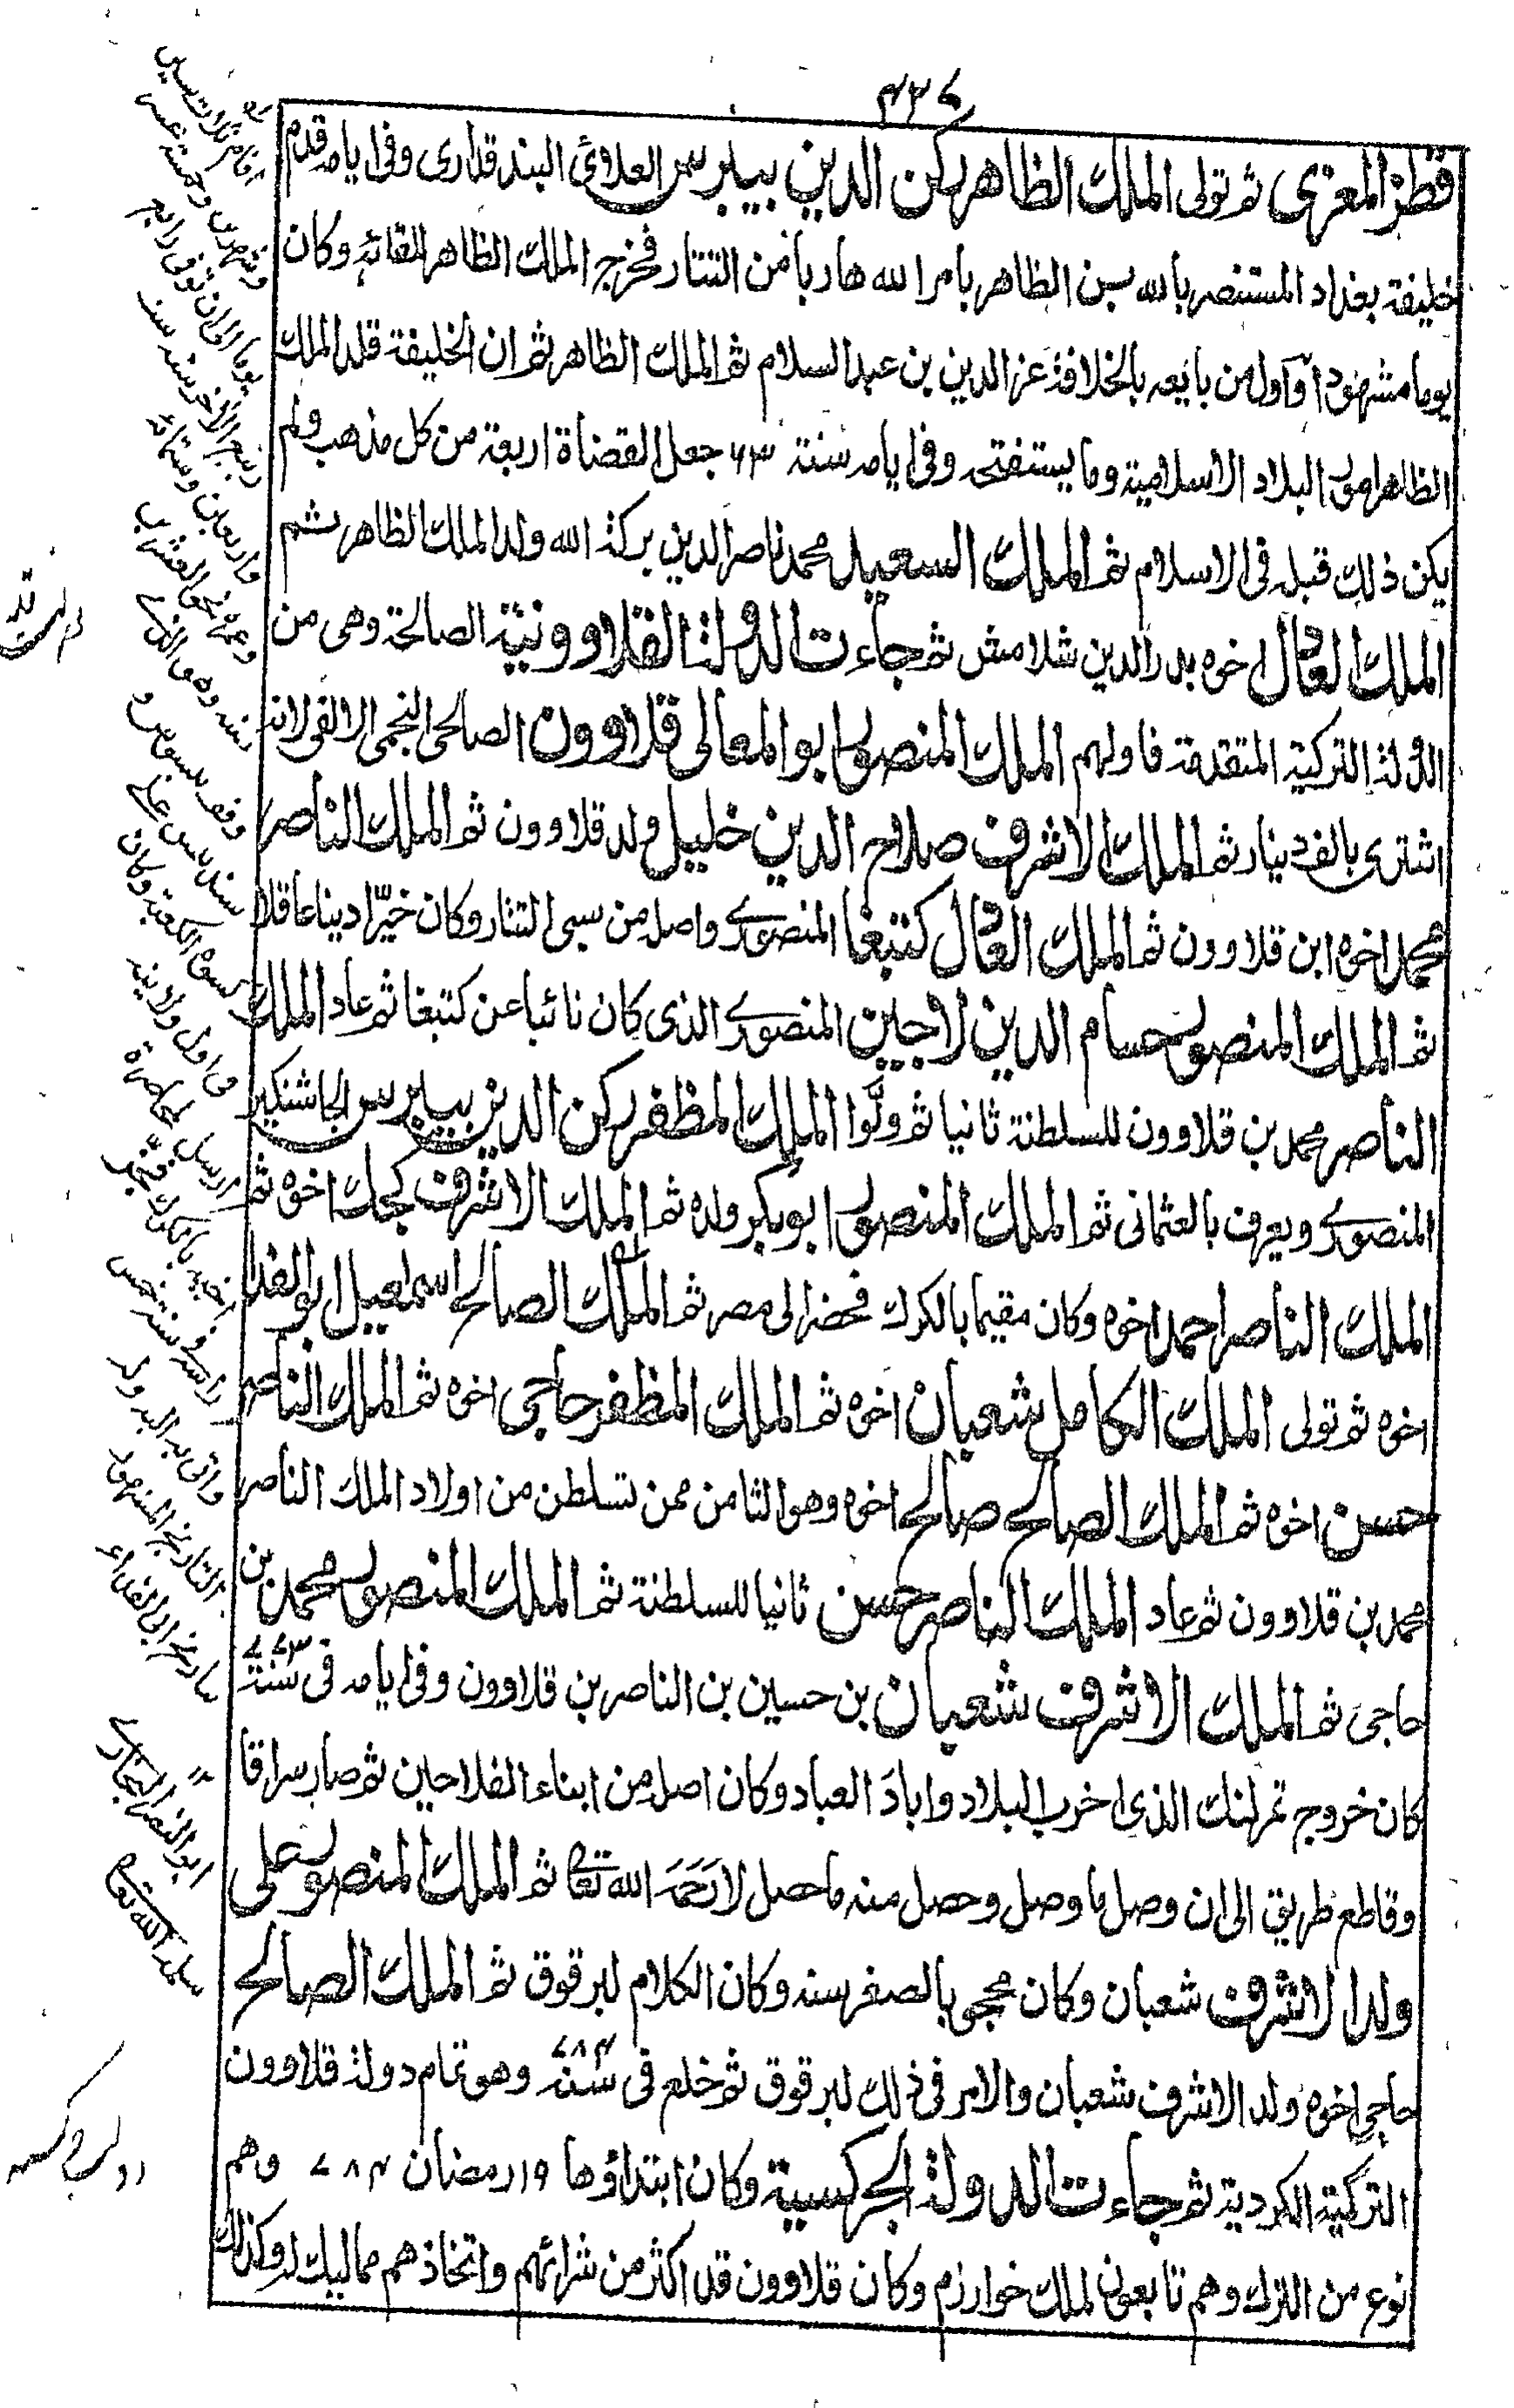 ۴۳۷
قطز المعزى ثم تولى الملك الظاهر ركن الدين بيبرس العلائى البندقدارى وفى ايامه قدم
خليفة بغداد المستنصر بالله بن الظاهر بامر الله هاربا من التتار فخرج الملك الظاهر للقائه وكان
يوما مشهودا واول من بايعه بالخلافة عز الدين بن عبد السلام ثم الملك الظاهر ثم ان الخليفة قلد الملك
الظاهر امور البلاد الاسلامية وما يستفتحه وفى ايامه سنة جعل القضاة اربعة من كل مذهب ولم
يكن ذلك قبله فى الاسلام ثم الملك السعيد محمد ناصر الدين بركة الله ولد الملك الظاهر ثم
الملك العادل اخوه بدر الدين شلامش ثم جاءت الدولة القلاوونية الصالحة وهى من
الدولة التركية المتقدمة فاولهم الملك المنصور ابو المعالى قلاوون الصالحى النجمى الالفى لانه
اشترى بالف دينار ثم الملك الاشرف صلاح الدين خليل ولد قلاوون ثم الملك الناصر
محمد اخوه ابن قلاوون ثم الملك العادل كتبغا المنصورى واصله من سبى التتار وكان خيّرا دينا عاقلا
ثم الملك المنصور حسام الدين لاجين المنصورى الذى كان نائبا عن كتبغا ثم عاد الملك
الناصر محمد بن قلاوون للسلطنة ثانيا ثم ولّوا الملك المظفر ركن الدين بيبرس الجاشنكير
المنصورى ويعرف بالعثمانى ثم الملك المنصور ابو بكر ولده ثم الملك الاشرف كجك اخوه ثم
الملك الناصر احمد اخوه وكان مقيما بالكرك فحضر الى مصر ثم الملك الصالح اسمعيل ابو الفدا
اخوه ثم تولى الملك الكامل شعبان اخوه ثم الملك المظفر حاجى اخوه ثم الملك الناصر
حسن اخوه ثم الملك الصالح صالح اخوه وهو الثامن ممن تسلطن من اولاد الملك الناصر
محمد بن قلاوون ثم عاد الملك الناصر حسن ثانيا للسلطنة ثم الملك المنصور محمد بن
حاجى ثم الملك الاشرف شعبان بن حسين بن الناصر بن قلاوون وفى ايامه فى سنة ۷۷۳
كان خروج تمرلنك الذى اخرب البلاد واباد العباد وكان اصله من ابناء الفلاحين ثم صار سراقا
وقاطع طريق الى ان وصل ما وصل وحصل منه ما حصل لا رحمه الله تعالى ثم الملك المنصور على
ولد الاشرف شعبان وكان محجى بالصغر سنه وكان الكلام لبرقوق ثم الملك الصالح
حاجى اخوه ولد الاشرف شعبان والامر فى ذلك لبرقوق ثم خلع فى سنة ۷۸۴ وهو تمام دولة قلاوون
التركية الكردية ثم جاءت الدولة الجركسية وكان ابتداؤها ۱۹ رمضان ۷۸۴ وهم
نوع من الترك وهم تابعون لملك خوارزم وكان قلاوون قد اكثر من شرائهم واتخاذهم مماليك له وكذلك
وشهرين وخمسة عشر
يوما الى ان توفى رابع
ربيع الآخر سنة ست
واربعين وستمائة
وعمره نحو العشرين
سنة وهو الذى
كسوة الكعبة وكان
فى اول ولايته
ارسل لمحاصرة
اخيه بالكرك
راسه فى سنة خمس
واتى به اليه ولد
التاريخ المشهور
بتاريخ ابى الفداء
ابو النصر البخارى
سلمه الله تعالى